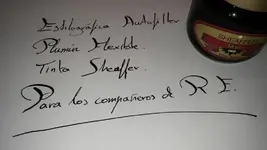 Estilográfica Autofiller
Plumín Flexible.
Tinta Sheaffer.
Para los compañeros de R E.
SHEAFFER